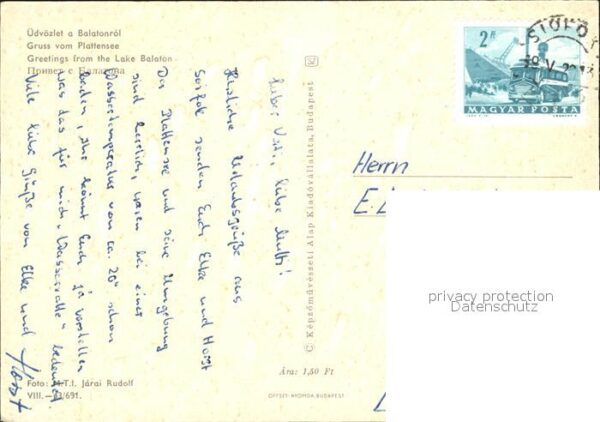 Üdvözlet a Balatonról
Gruss vom Plattensee
Greetings from the Lake Balaton
Привет с Балатона
Lieber Vati, liebe Mutti!
Herzliche Urlaubsgrüße aus
Siófok senden Euch Elke und Horst
Der Plattensee und seine Umgebung
sind herrlich, waren bei einer
Wassertemperatur von ca. 20° schon
baden, Ihr könnt Euch ja vorstellen
was das für mich "Wasserratte" bedeutet.
Viele liebe Grüße von Elke und
Horst
Foto: M.T.I. Járai Rudolf
VIII.—63/691.
© Képzőművészeti Alap Kiadóvállalata, Budapest
Ára: 1,50 Ft
OFFSET-NYOMDA BUDAPEST
2 Ft
MAGYAR POSTA
SIÓFOK
Herrn
E.
privacy protection
Datenschutz